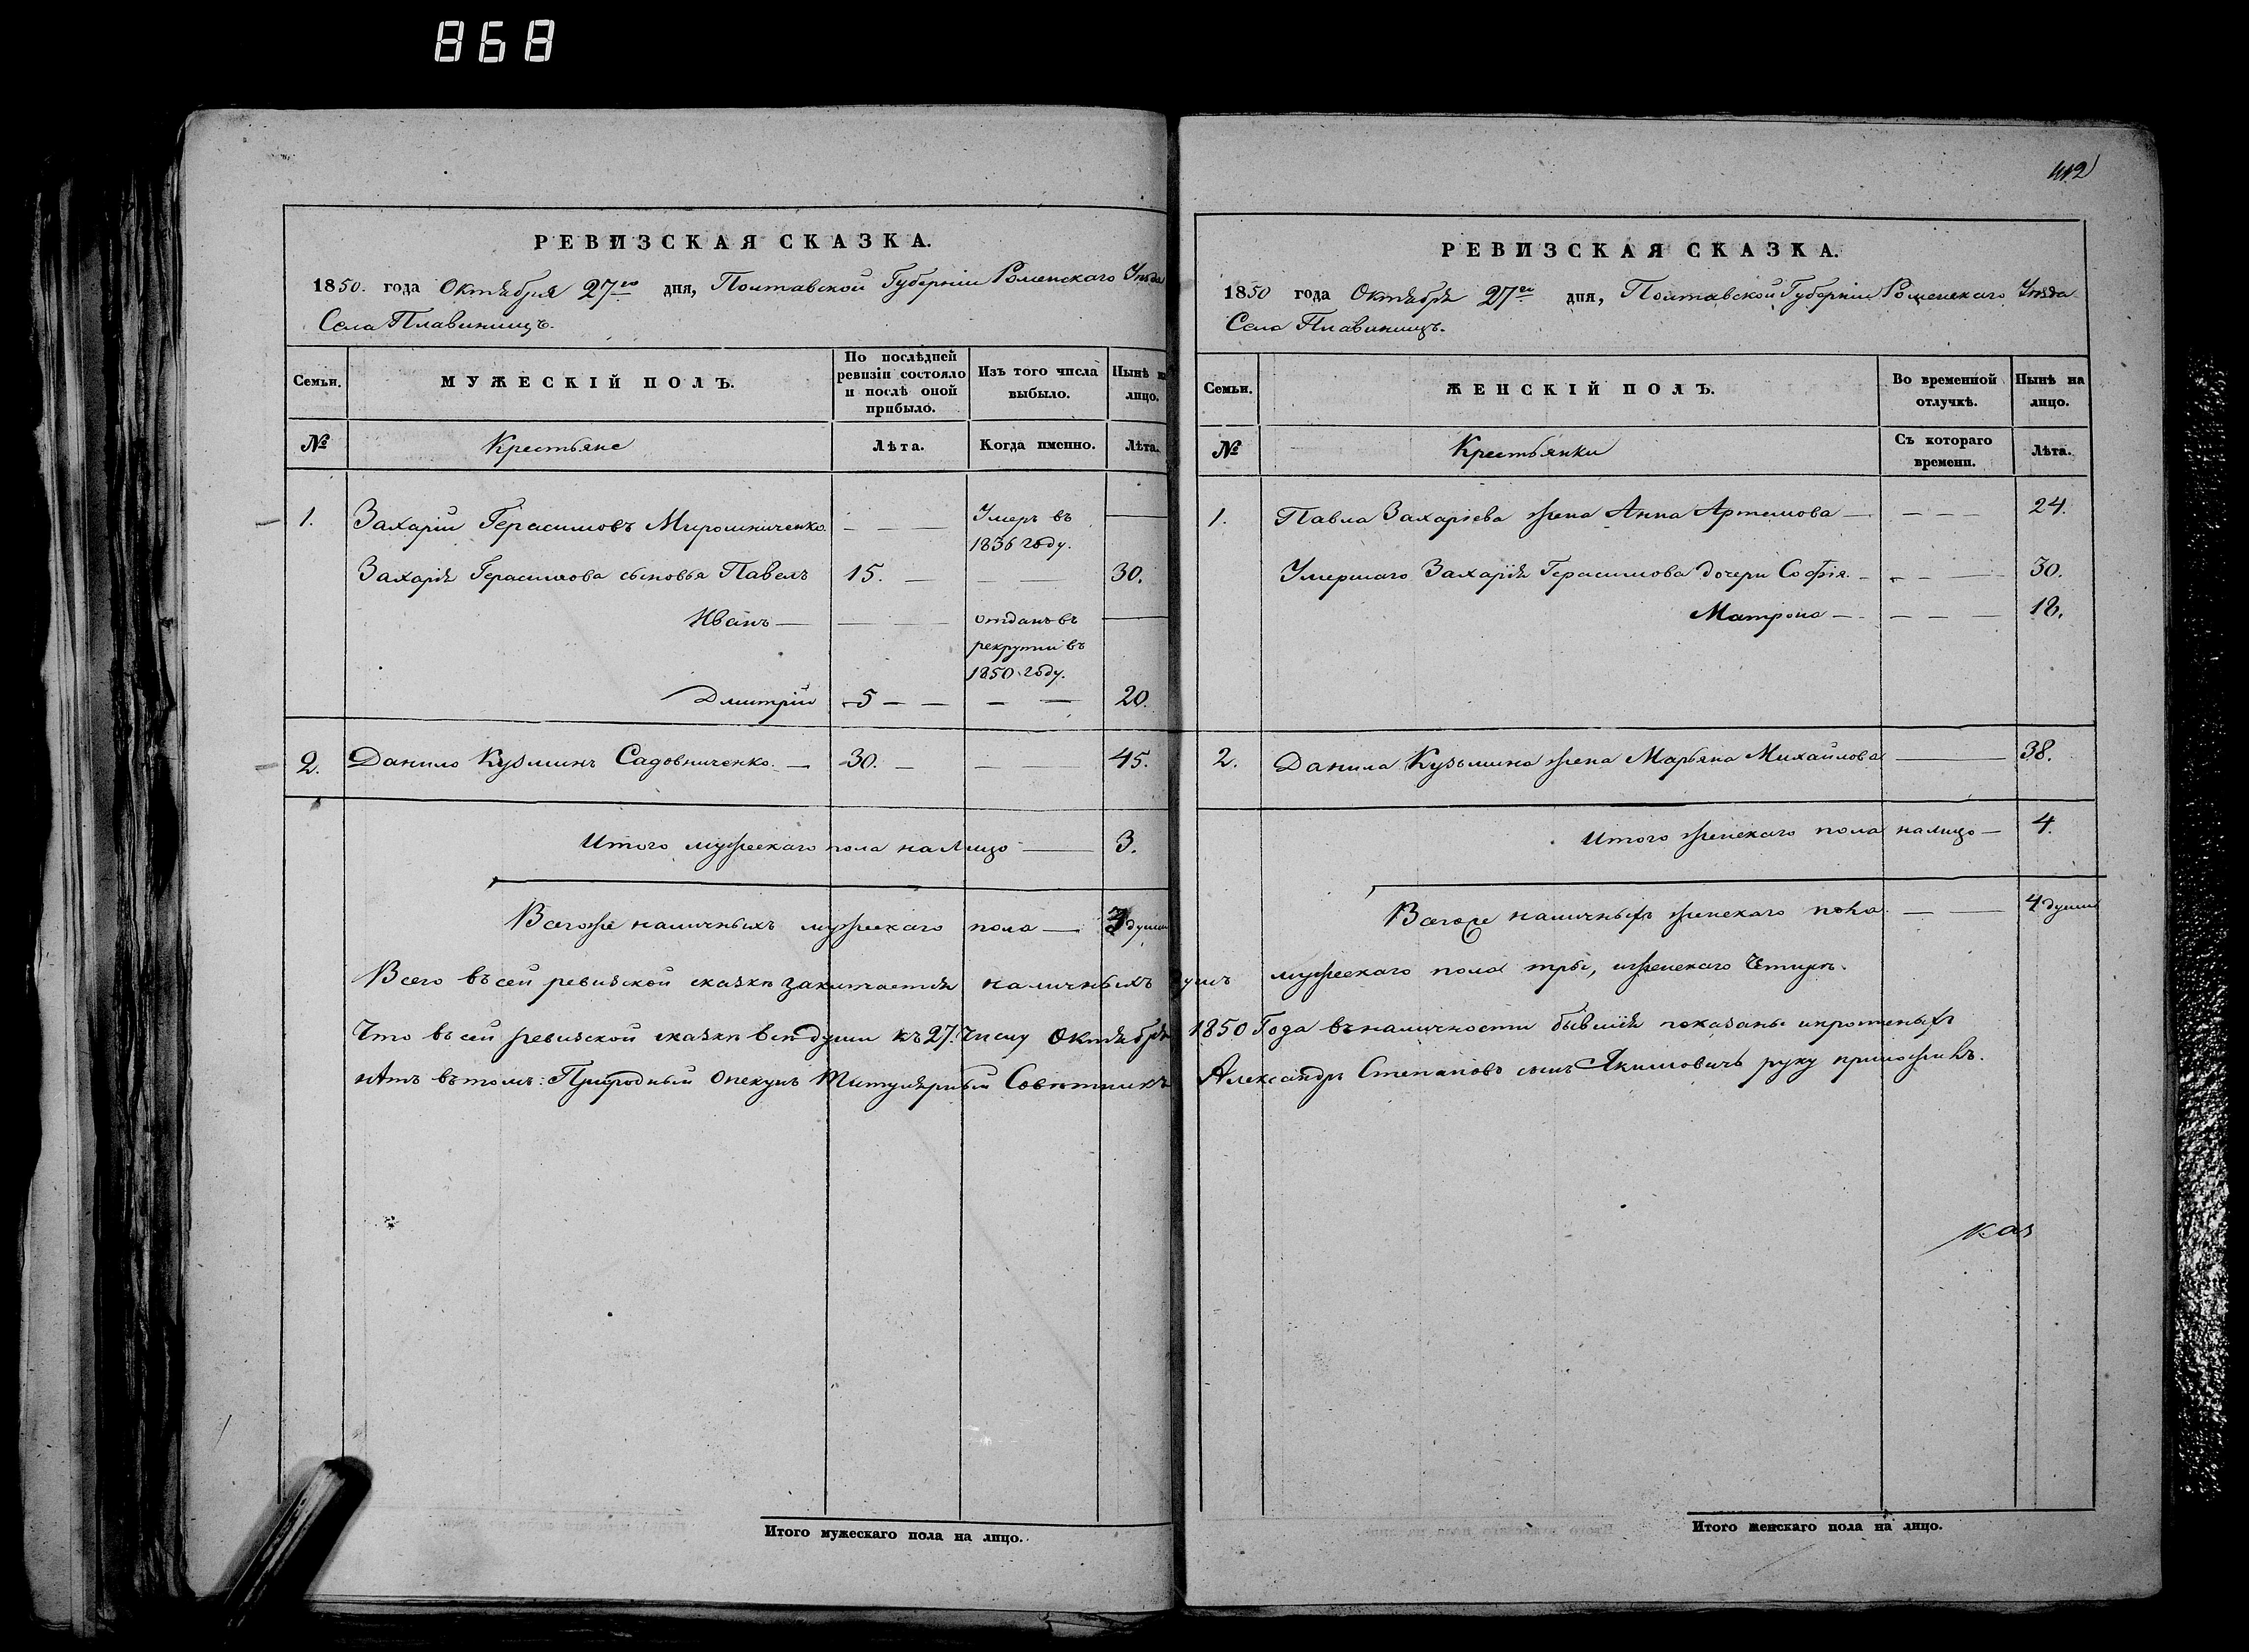 868
412
РЕВИЗСКАЯ СКАЗКА.
1850. года Октября 27го дня, Полтавской Губерніи Роменскаго Уѣзда
Села Плавинищъ.
Семьи. МУЖЕСКІЙ ПОЛЪ. По послѣдней ревизіи состояло и послѣ оной прибыло. Изъ того числа выбыло. Нынѣ на лицо.
№ Крестьяне Лѣта. Когда именно. Лѣта.
1. Захарій Герасимовъ Мирошниченко. — — Умеръ въ 1836 году. —
Захарія Герасимова сыновья Павелъ 15. — — 30.
Иванъ — — отданъ въ рекруты въ 1850 году. —
Дмитрій 5 — — — — 20.
2. Данило Кузминъ Садовниченко. — 30. — — 45.
Итого мужескаго пола налицо — 3.
Всего же наличныхъ мужескаго пола — 3 души
РЕВИЗСКАЯ СКАЗКА.
1850 года Октября 27го дня, Полтавской Губерніи Роменскаго Уѣзда
Села Плавинищъ.
Семьи. ЖЕНСКІЙ ПОЛЪ. Во временной отлучкѣ. Нынѣ на лицо.
№ Крестьянки Съ котораго времени. Лѣта.
1. Павла Захаріева жена Анна Артемова — — — — 24.
Умершаго Захарія Герасимова дочери Софія. — — — 30.
Матрона — — — — 18.
2. Данила Кузьмина жена Марьяна Михайлова — 38.
Итого женскаго пола налицо — 4.
Всего же наличныхъ женскаго пола. — — 4 души
Всего въ сей ревизской сказкѣ заключается наличныхъ душъ мужескаго пола три, и женскаго Четыре.
Что въ сей ревизской сказкѣ всѣ души къ 27. Числу Октября 1850 Года въ наличности бывшія показаны и
нѣтъ въ томъ: Природный Опекунъ Титулярный Совѣтникъ Александръ Степановъ сынъ Якимовичъ руку приложилъ.
каз
Итого мужескаго пола на лицо.
Итого женскаго пола на лицо.